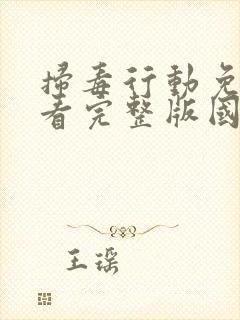 掃毒行動免
看完整版國
王琛